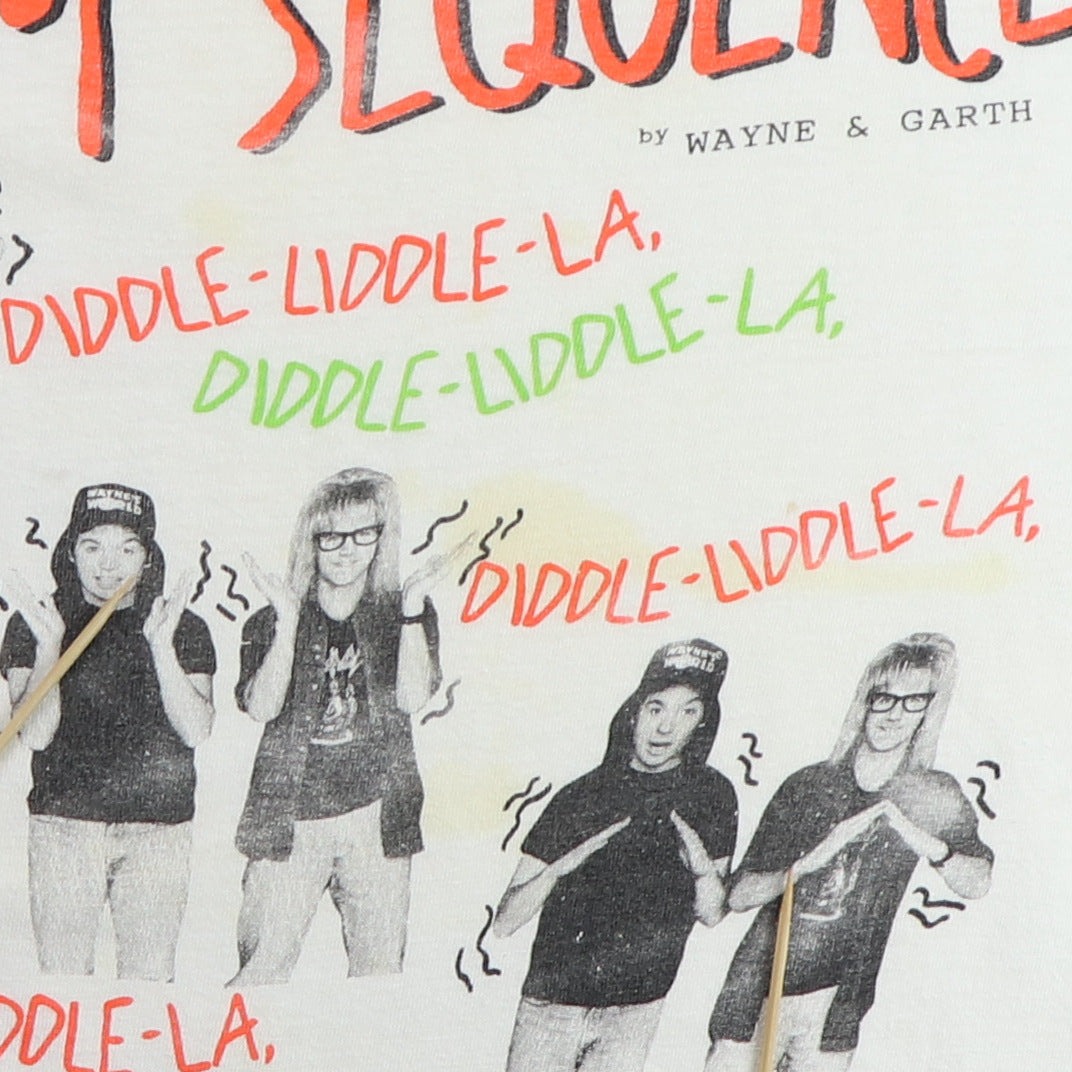 SEQUENCE
by WAYNE & GARTH
DIDDLE-LIDDLE-LA,
DIDDLE-LIDDLE-LA,
DIDDLE-LIDDLE-LA,
WAYNE'S
WORLD
WAYNE'S
WORLD
DDLE-LA,